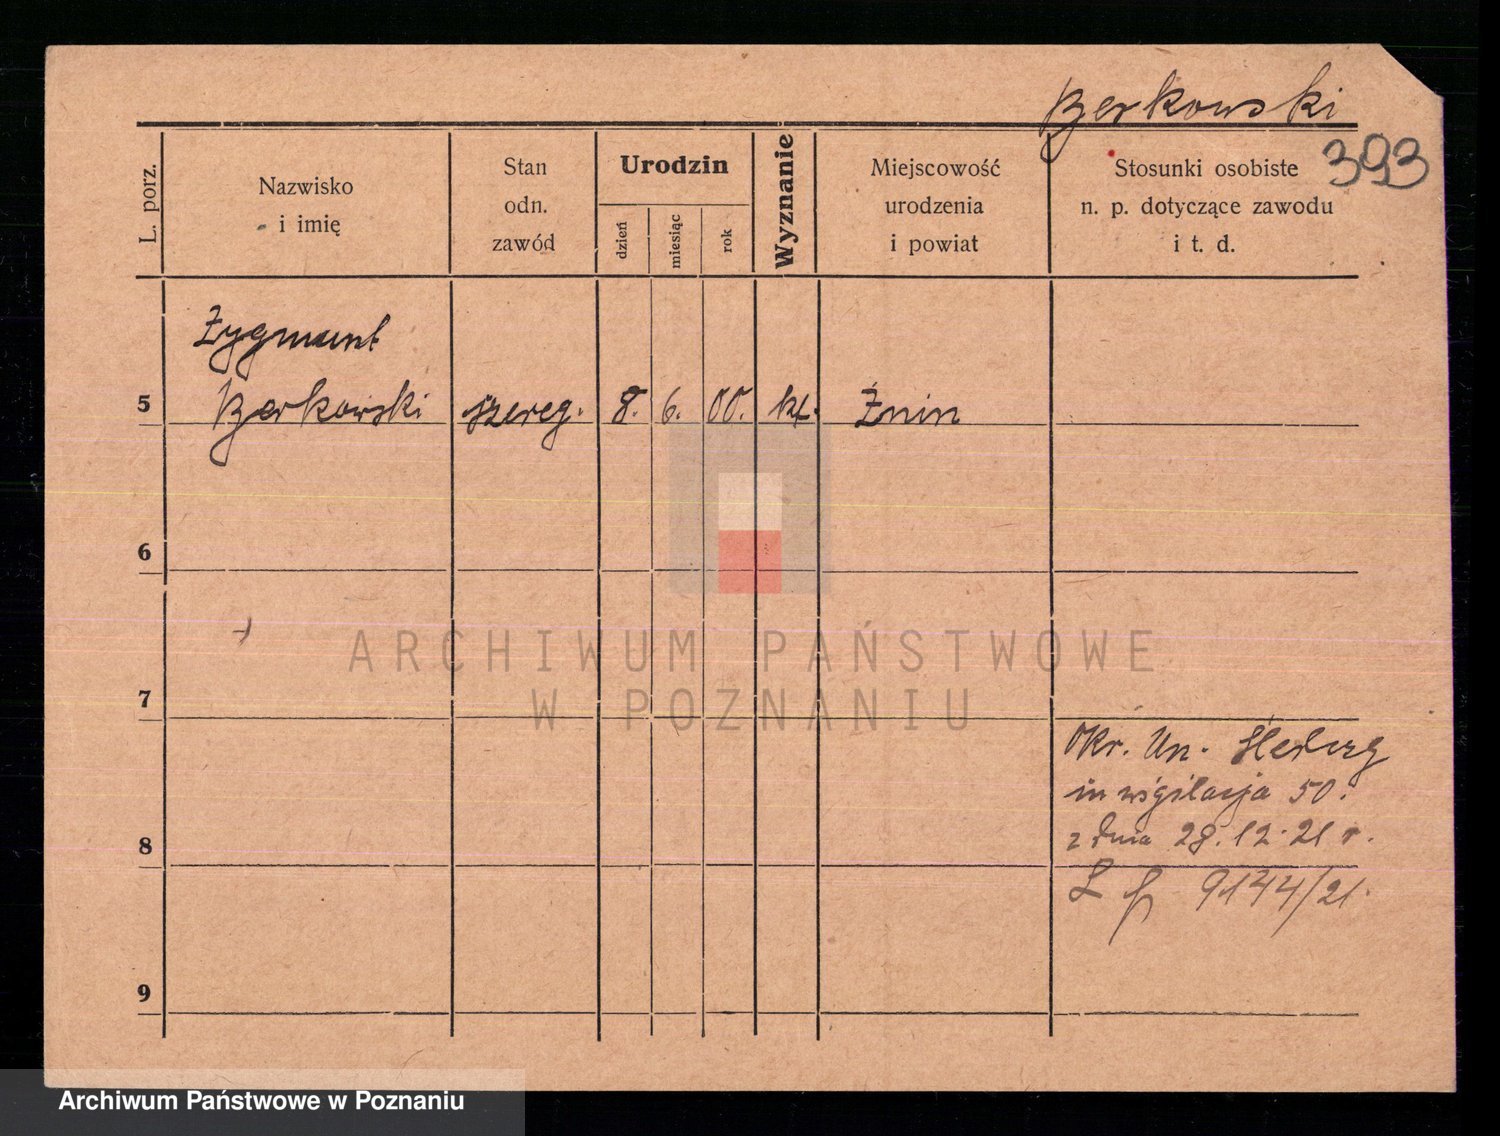 Berkowski
393
L. porz.
Nazwisko
i imię
Stan
odn.
zawód
Urodzin
dzień
miesiąc
rok
Wyznanie
Miejscowość
urodzenia
i powiat
Stosunki osobiste
n. p. dotyczące zawodu
i t. d.
Zygmunt
5 Berkowski szereg. 8. 6. 00. kt. Żnin
6
7
ARCHIWUM PAŃSTWOWE
W POZNANIU
Okr. Urz. Śledczy
inwigilacja 50.
z dnia 28.12.21 r.
8
L 9144/21.
9
Archiwum Państwowe w Poznaniu